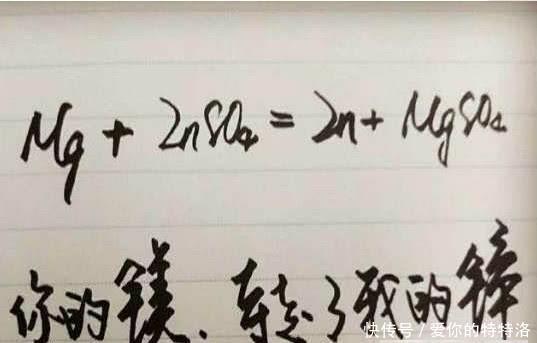 Mg + ZnSO₄ = Zn + MgSO₄
你的镁、夺走了我的锌
快传号/爱你的特特洛